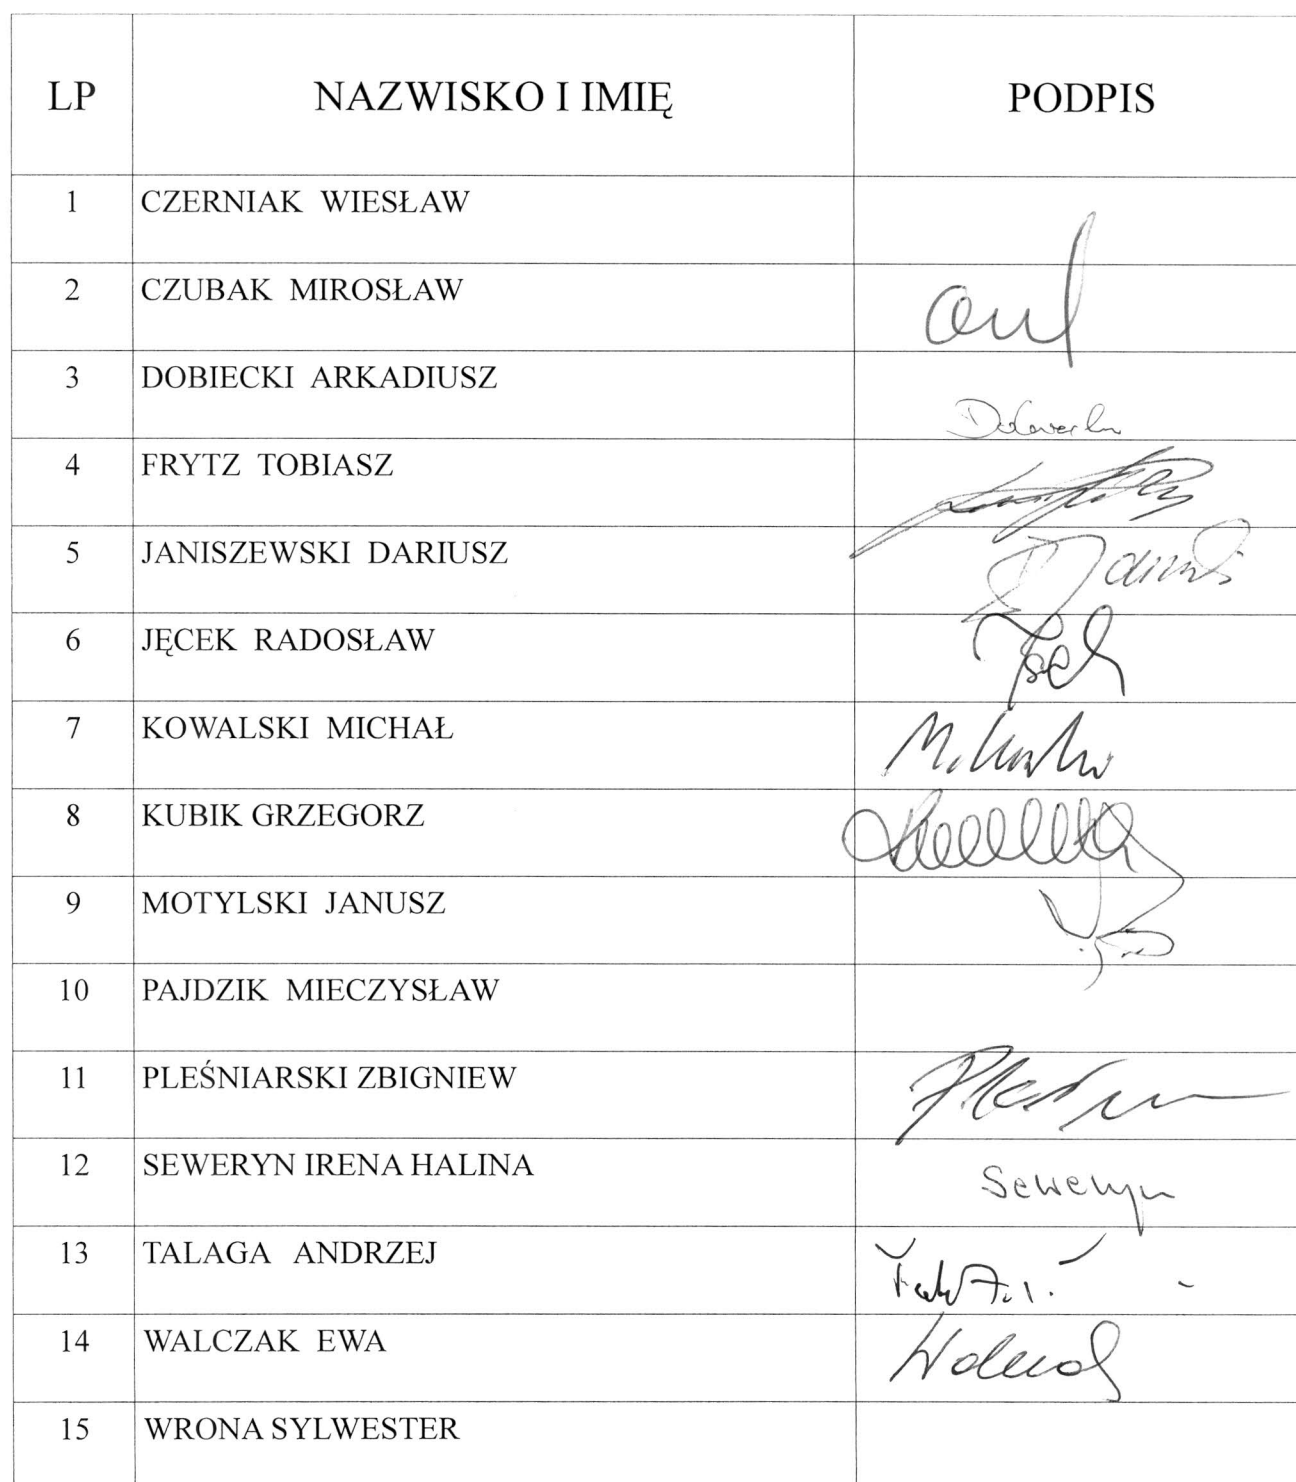 LP NAZWISKO I IMIĘ PODPIS
1 CZERNIAK WIESŁAW
2 CZUBAK MIROSŁAW
3 DOBIECKI ARKADIUSZ
4 FRYTZ TOBIASZ
5 JANISZEWSKI DARIUSZ
6 JĘCEK RADOSŁAW
7 KOWALSKI MICHAŁ
8 KUBIK GRZEGORZ
9 MOTYLSKI JANUSZ
10 PAJDZIK MIECZYSŁAW
11 PLEŚNIARSKI ZBIGNIEW
12 SEWERYN IRENA HALINA Seweryn
13 TALAGA ANDRZEJ
14 WALCZAK EWA
15 WRONA SYLWESTER